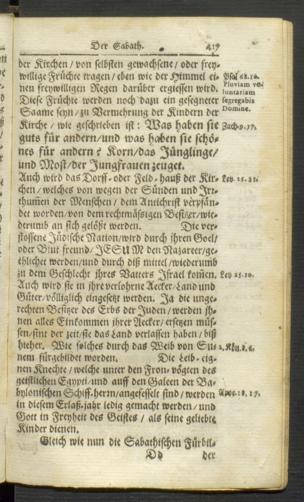 Der Sabath. 417
der Kirchen / von selbsten gewachsene / oder frey-
willige Früchte tragen / eben wie der Himmel ei-
nen freywilligen Regen darüber ergiessen wird.
Diese Früchte werden noch dazu ein gesegneter
Saame seyn / zu Vermehrung der Kindern der
Kirche / wie geschrieben ist: Was haben sie
guts für andern / und was haben sie schö-
nes für andern? Korn / das Jünglinge /
und Most / der Jungfrauen zeuget.
Auch wird das Dorff- oder Feld-hauß der Kir-
chen / welches von wegen der Sünden und Irr-
thumen der Menschen / dem Antichrist verpfän-
det worden / von dem rechtmässigen Besitzer / wie-
derumb an sich gelößt werden. Die ver-
stossene Jüdische Nation / wird durch ihren Goel /
oder Blut freund / JESUM den Nazareer / ge-
ehlichet werden / und durch diß mittel / wiederumb
zu dem Geschlecht ihres Vatters Israel komen.
Auch wird sie in ihre verlohrne Aecker / Land und
Güter / völliglich eingesetzt werden. Ja die unge-
rechten Besitzer des Erbs der Juden / werden ih-
nen alles Einkommen ihrer Aecker / ersetzen müs-
sen / sint der zeit / sie das Land verlassen haben / biß
hieher. Wie solches durch das Weib von Su-
nem fürgebildet worden. Die Leib-eig-
nen Knechte / welche unter den Fron-vögten des
geistlichen Egypti / und auff den Galeen der Ba-
bylonischen Schiff-herrn / angefesselt sind / werden
in diesem Erlaß-jahr ledig gemacht werden / und
Gott in Freyheit des Geistes / als seine geliebte
Kinder dienen.
Gleich wie nun die Sabathischen Fürbil-
Dd der
Psal. 68. 10.
Pluviam vo-
luntariam
segregabis
Domine.
Zach. 9. 17.
Lev. 25. 25.
Lev 25. 10.
2. Kön. 8. 6.
Apoc. 18, 17.